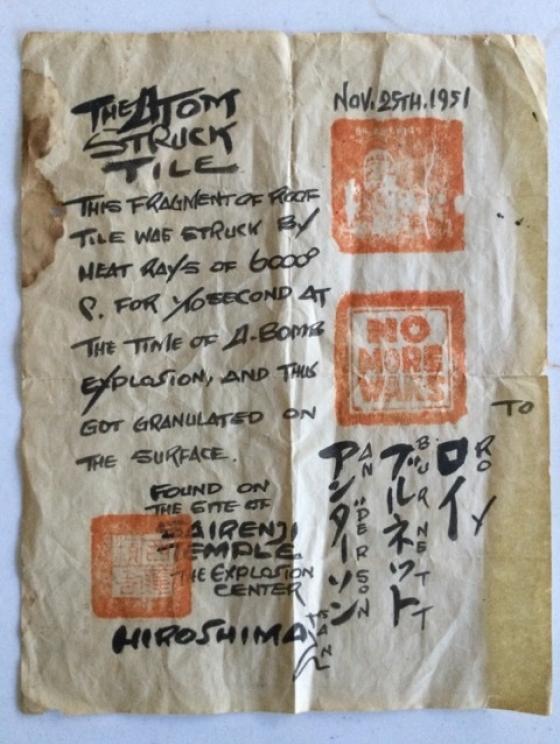 THE ATOM
STRUCK
TILE
THIS FRAGMENT OF ROOF
TILE WAS STRUCK BY
HEAT RAYS OF 6000°
C. FOR 1/10 SECOND AT
THE TIME OF A-BOMB
EXPLOSION, AND THUS
GOT GRANULATED ON
THE SURFACE.
FOUND ON
THE SITE OF
SAIRENJI
TEMPLE
THE EXPLOSION
CENTER
HIROSHIMA
NOV. 25TH. 1951
NO
MORE
WARS
TO
ROY
ロイ
BURNETT
ブルネット
ANDERSON
アンダーソン
SAN